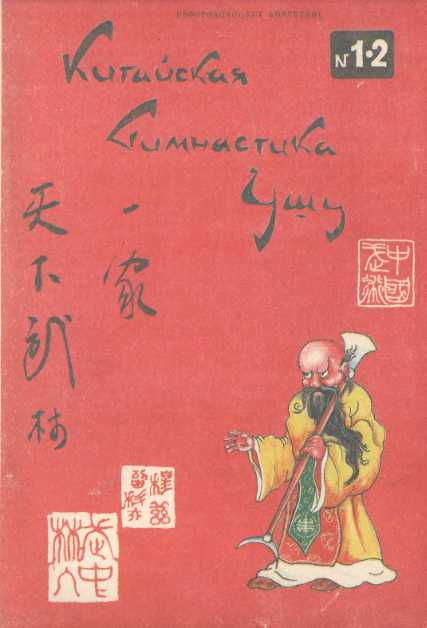 ИНФОРМАЦИОННЫЙ БЮЛЛЕТЕНЬ
N 1·2
Китайская
Гимнастика
Ушу
天下武林
一家
中國武術